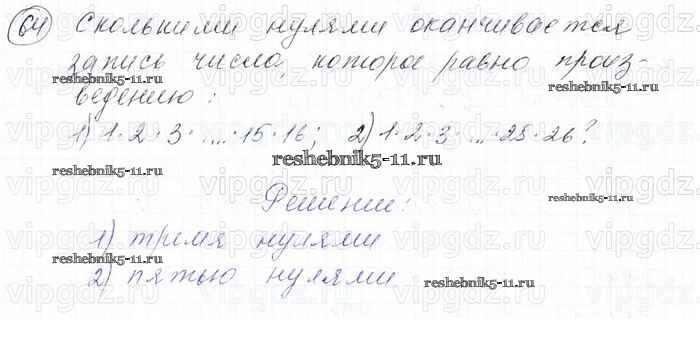 64 Сколькими нулями оканчивается
запись числа, которое равно произ-
ведению:
1) 1·2·3·....·15·16; 2) 1·2·3·...·25·26?
Решение:
1) тремя нулями
2) пятью нулями
vipgdz.ru
reshebnik5-11.ru
reshebnik5-11.ru
reshebnik5-11.ru
reshebnik5-11.ru
reshebnik5-11.ru
reshebnik5-11.ru
reshebnik5-11.ru